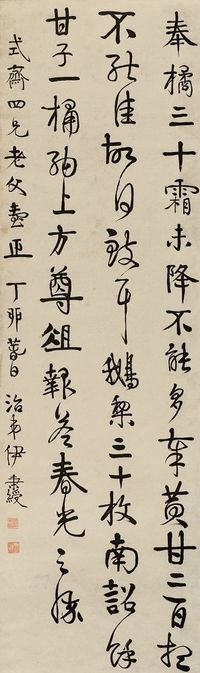 奉橘三十霜未降不能多奉黃甘二百想
不能佳故致耳鵝梨三十枚南詔
甘子一桶上方尊俎報答春光之
式齋四兄老父臺正 丁卯日 治弟伊秉綬